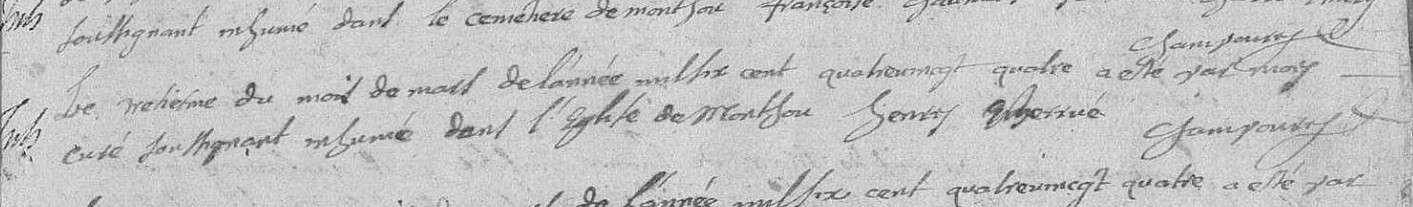 Inh soussignant inhumé dans le cemetiere de monthou françoise
Champouvry
Le treiesme du mois de mars de l'année mil six cent quatrevingt quatre a esté par moy
Inh curé soussignant inhumé dans l'Eglise de Monthou henry
Champouvry
de l'année mil six cent quatrevingt quatre a esté par